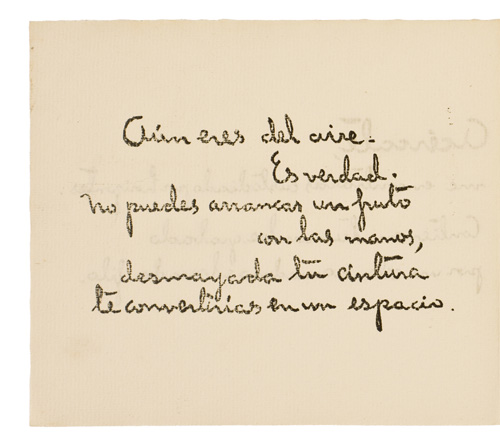 Aún eres del aire.
Es verdad.
No puedes arrancar un fruto
con las manos,
desmayada tu cintura
te convertirías en un espacio.